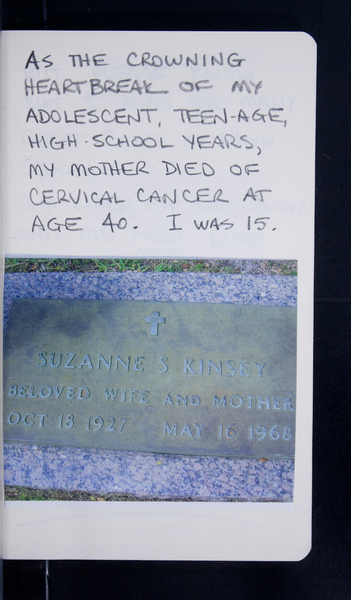 AS THE CROWNING
HEARTBREAK OF MY
ADOLESCENT, TEEN-AGE,
HIGH-SCHOOL YEARS,
MY MOTHER DIED OF
CERVICAL CANCER AT
AGE 40. I WAS 15.
SUZANNE S KINSEY
BELOVED WIFE AND MOTHER
OCT 18 1927 MAY 16 1968